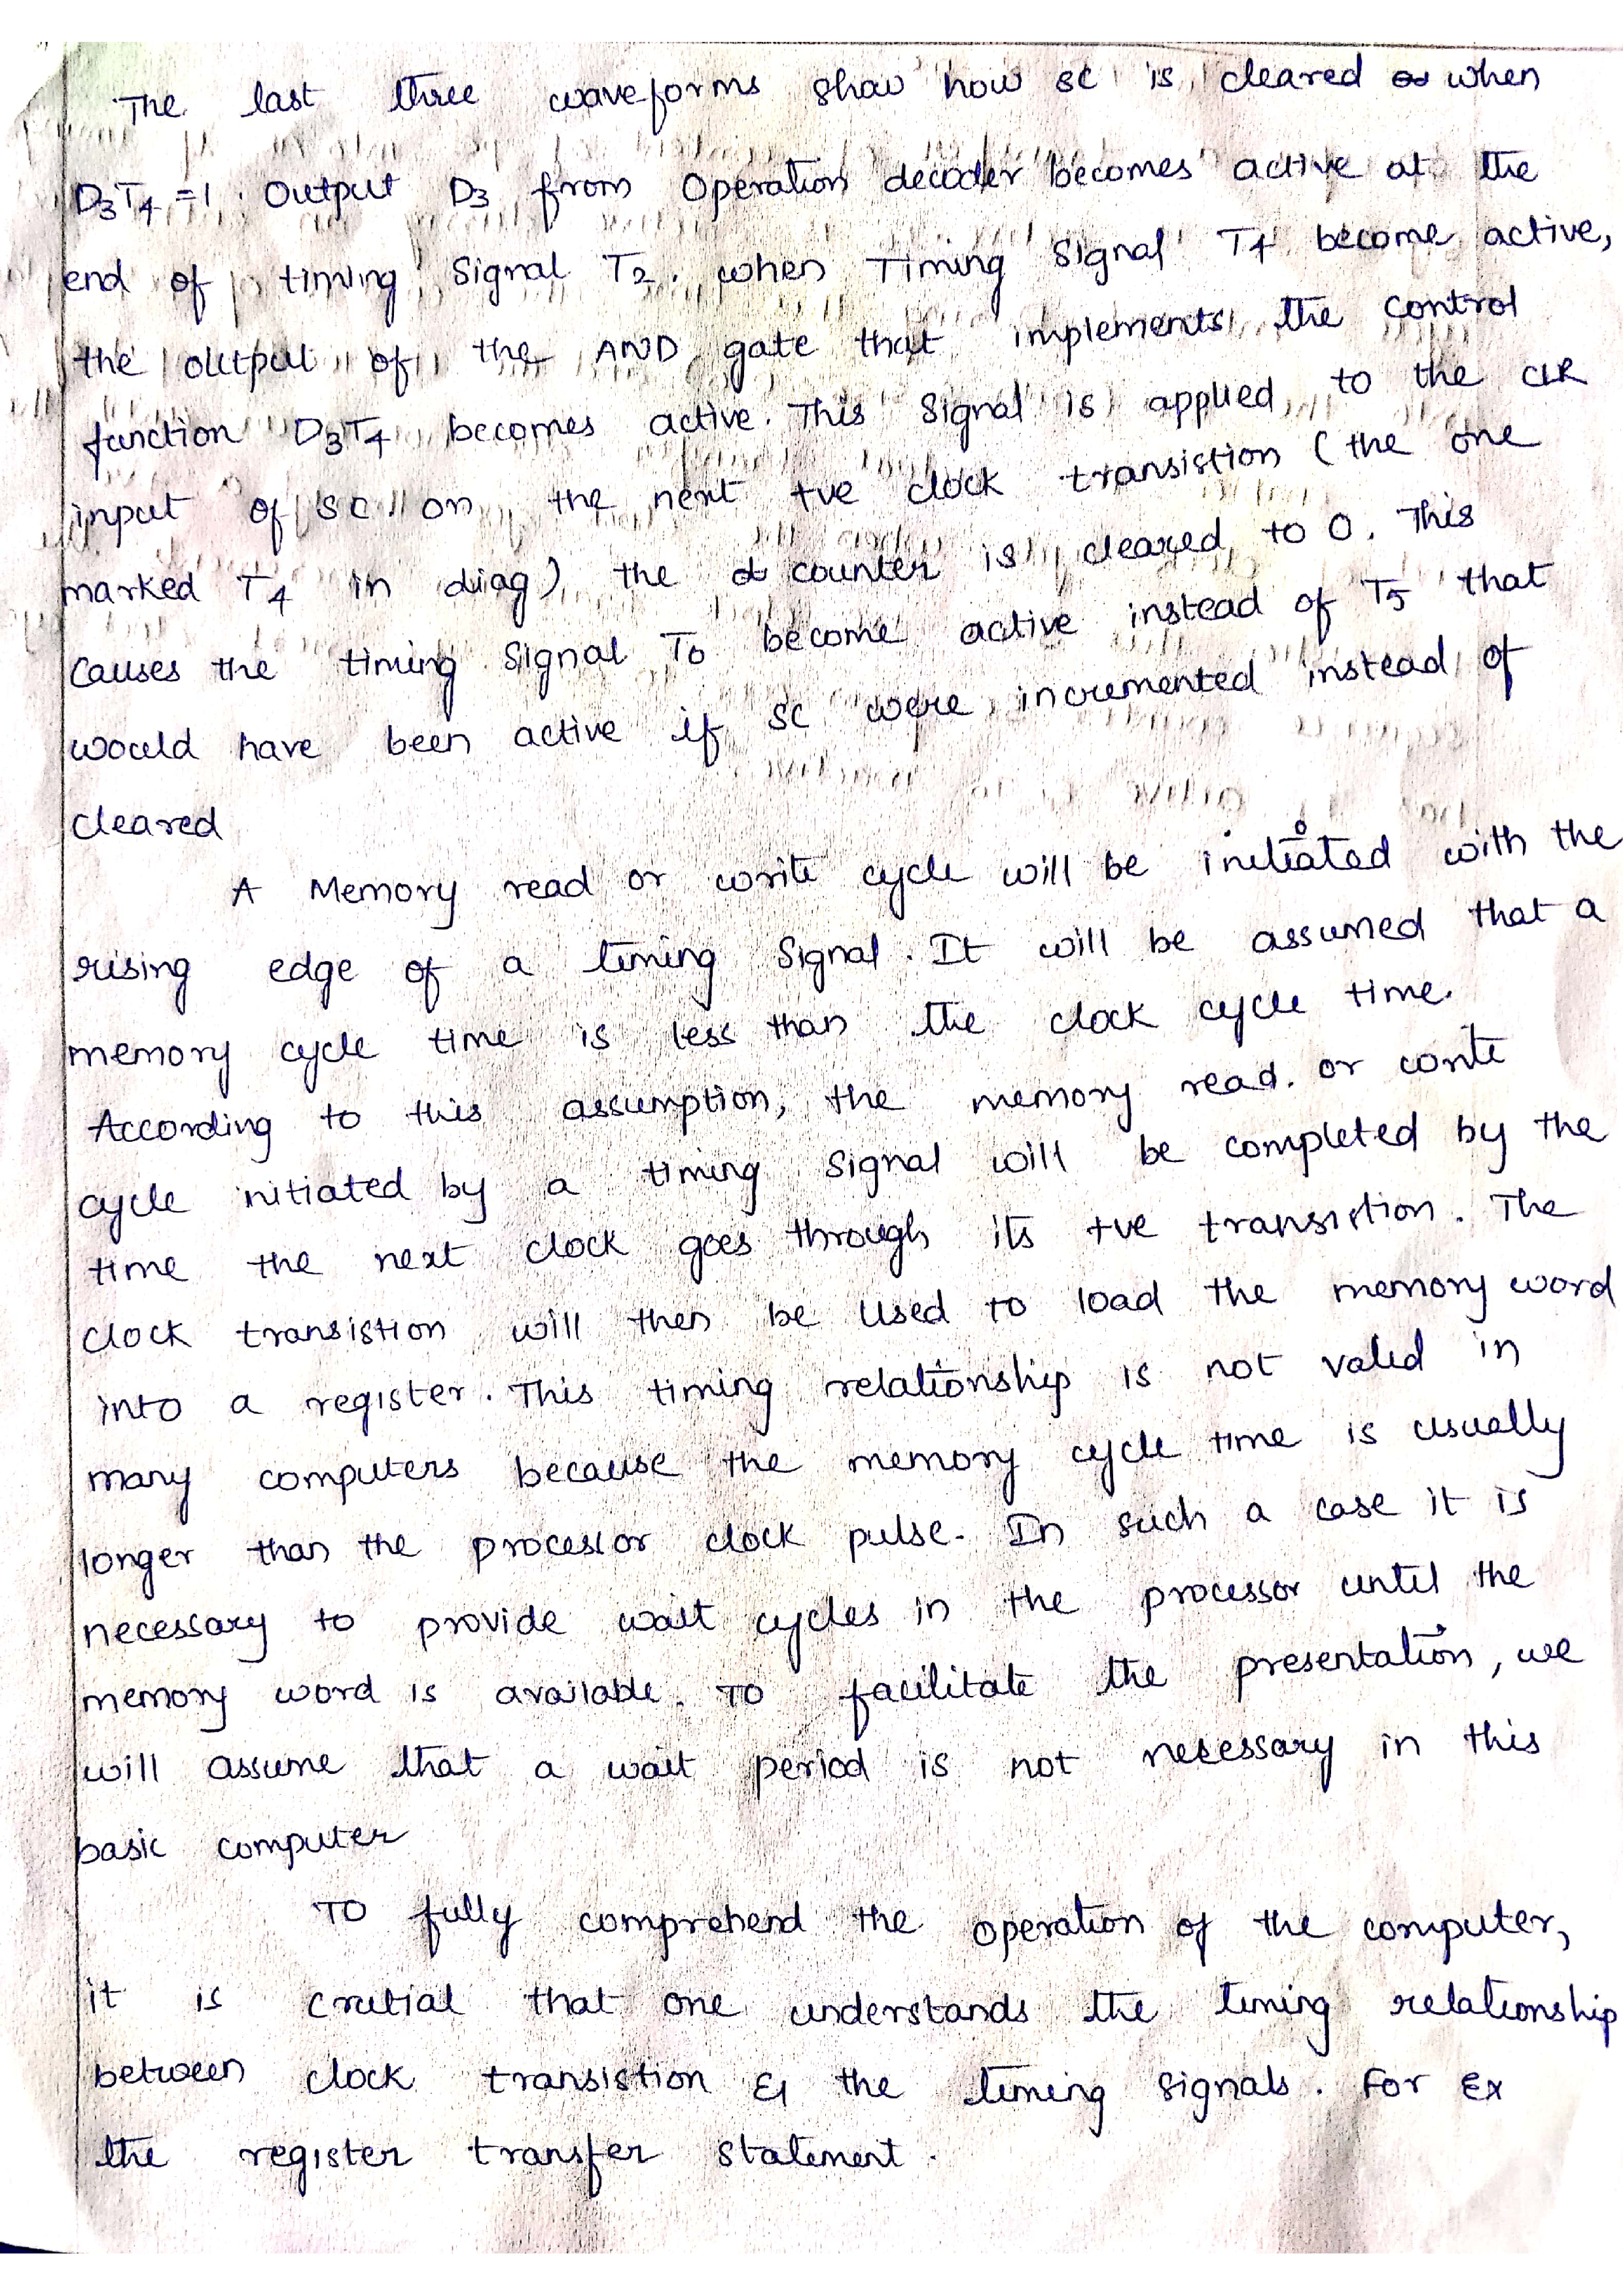 The last three waveforms show how SC is cleared when
D₃T₄ = 1. Output D₃ from Operation decoder becomes active at the
end of timing Signal T₂. when Timing Signal T4 become active,
the output of the AND gate that implements the control
function D₃T₄ becomes active. This Signal is applied to the CLR
input of SC on the next +ve clock transistion (the one
marked T₄ in diag) the counter is cleared to 0. This
causes the timing Signal T₀ become active instead of T₅ that
would have been active if SC were incremented instead of
cleared
A Memory read or write cycle will be initiated with the
rising edge of a timing Signal. It will be assumed that a
memory cycle time is less than the clock cycle time.
According to this assumption, the memory read. or write
cycle initiated by a timing signal will be completed by the
time the next clock goes through its +ve transistion. The
clock transistion will then be Used to load the memory word
into a register. This timing relationship is not valid in
many computers because the memory cycle time is usually
longer than the processor clock pulse. In such a case it is
necessary to provide wait cycles in the processor until the
memory word is available. To facilitate the presentation, we
will assume that a wait period is not necessary in this
basic computer
To fully comprehend the operation of the computer,
it is crutial that one understands the timing relationship
between clock transistion & the timing signals. For Ex
the register transfer statement.